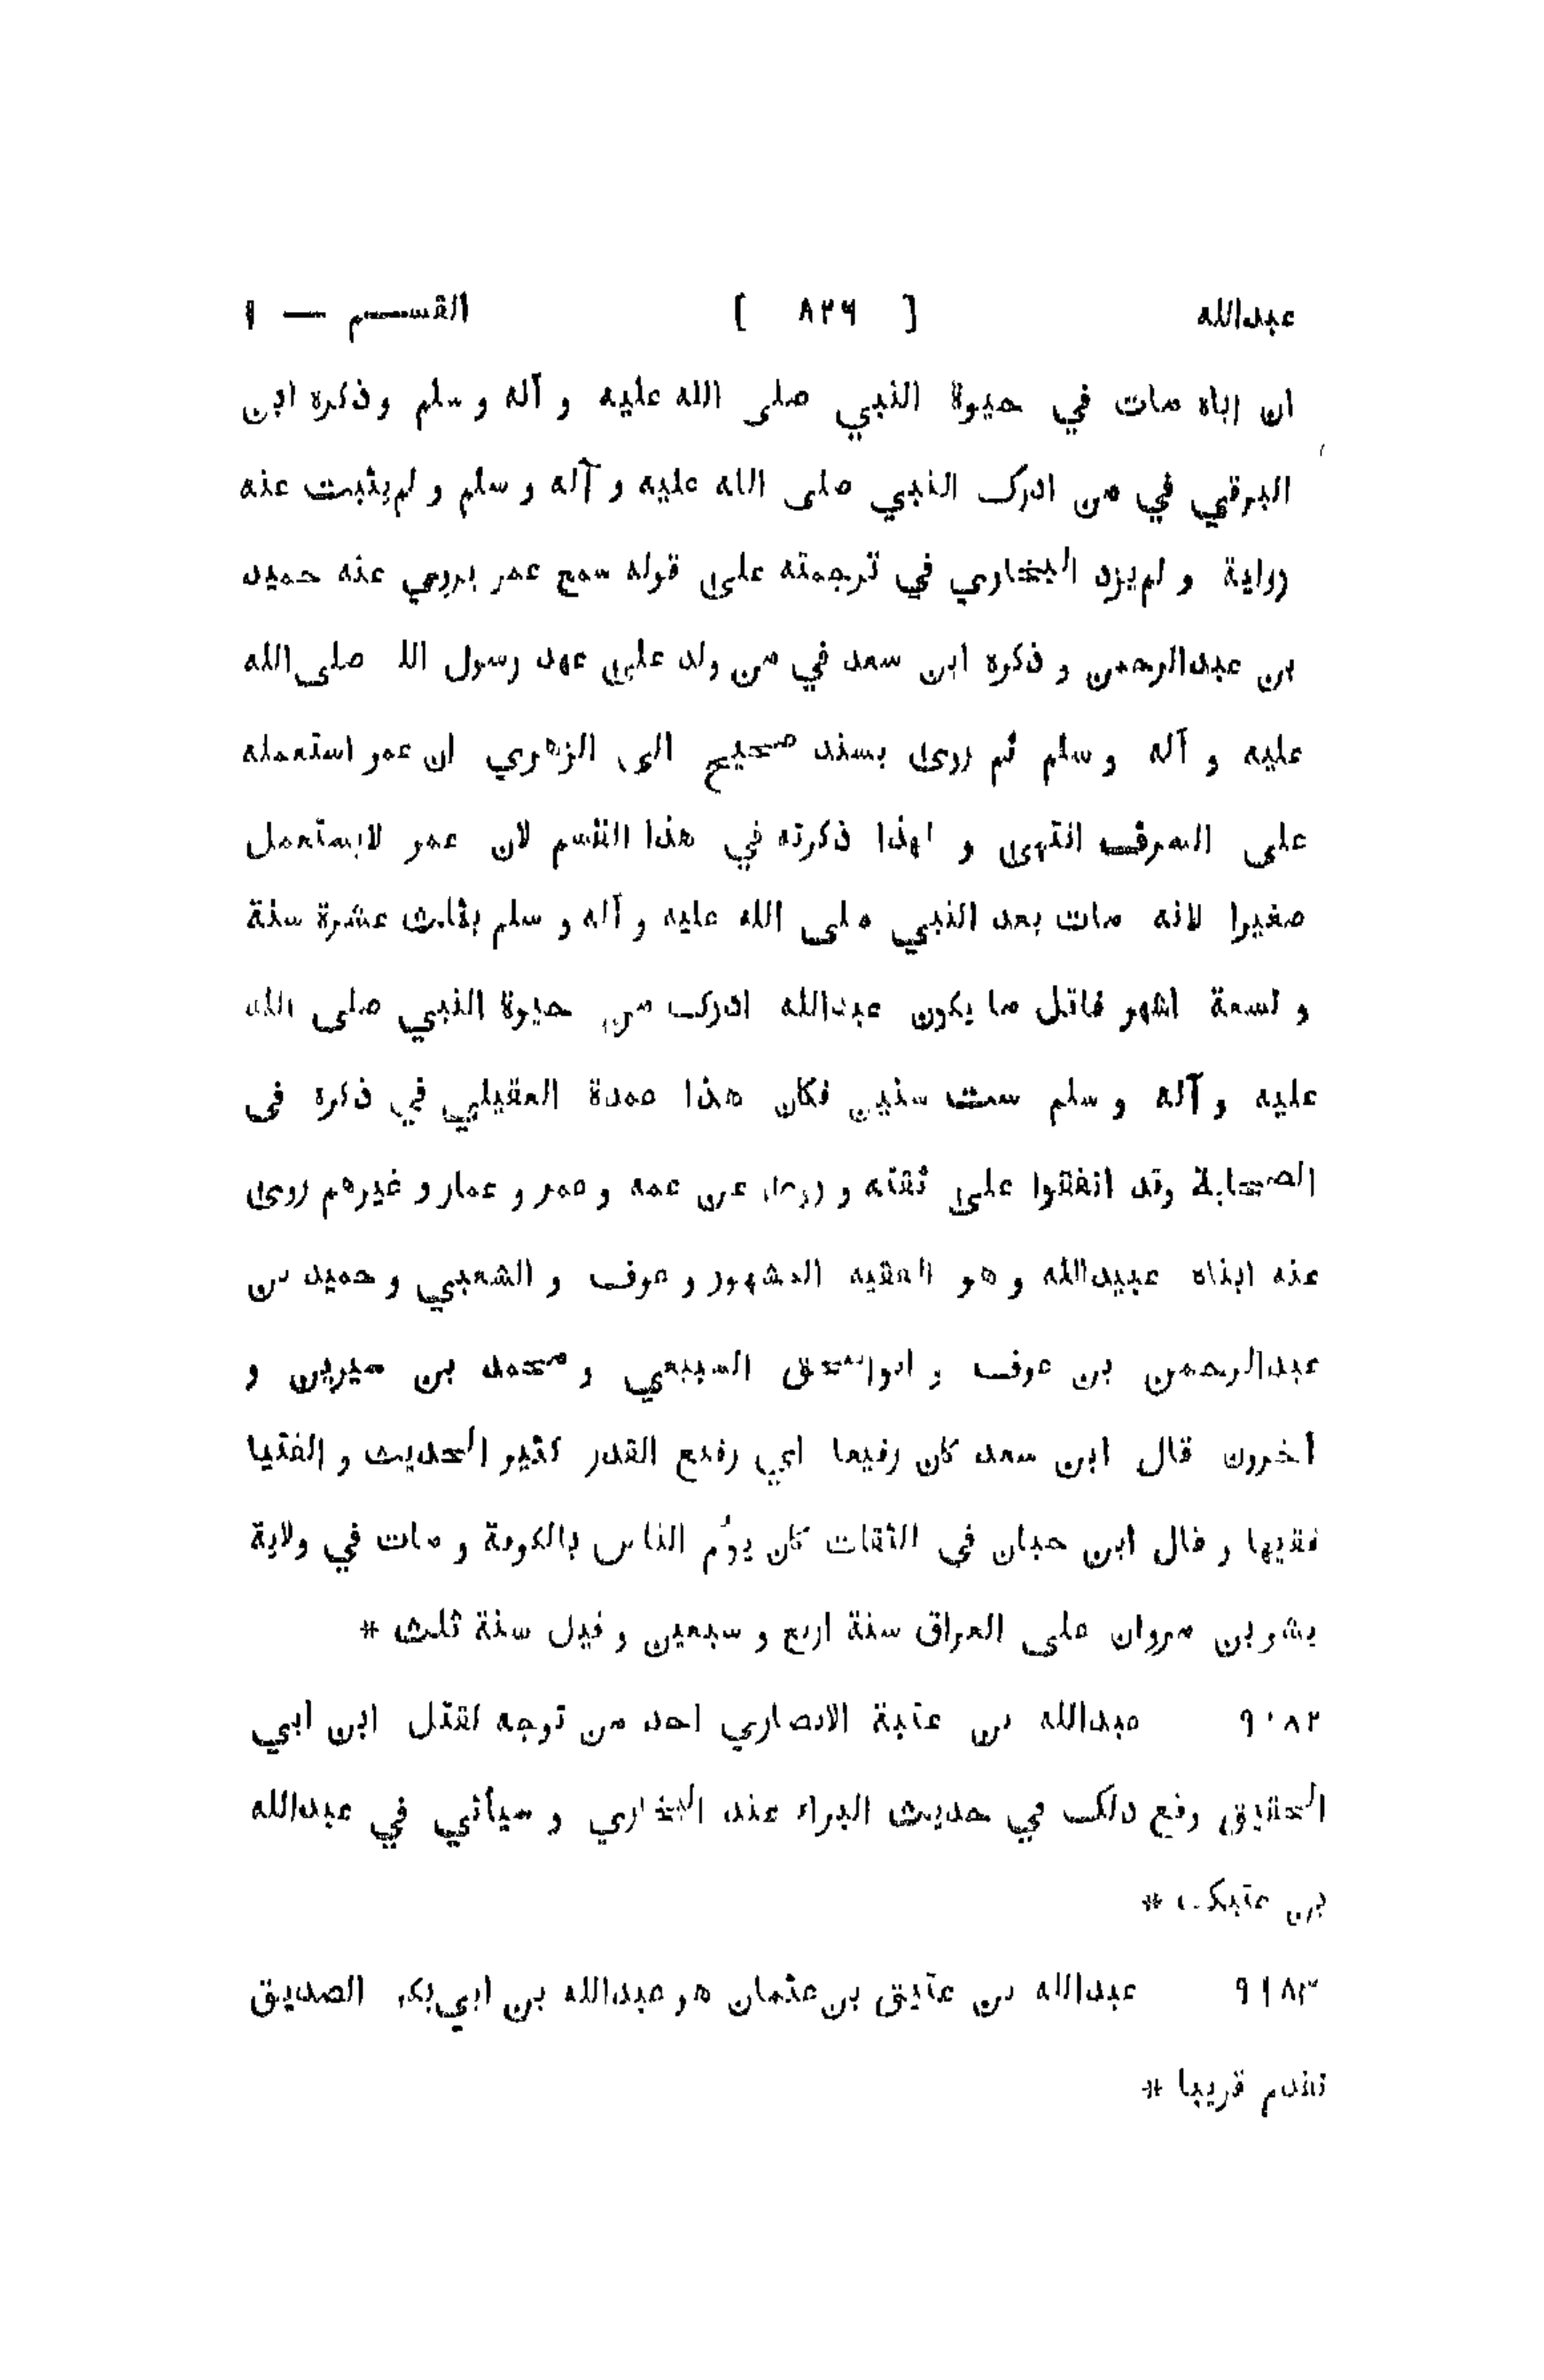 عبدالله [ ٨٢٦ ] القســـم — ١
ان اباه مات في حيوة النبي صلى الله عليه و آله و سلم وذكره ابن
البرقي في من ادرك النبي صلى الله عليه و آله و سلم و لم يثبت عنه
رواية و لم يزد البخاري في ترجمته على قوله سمع عمر يروي عنه حميد
بن عبدالرحمن و ذكره ابن سعد في من ولد على عهد رسول الله صلى الله
عليه و آله و سلم ثم روى بسند صحيح الى الزهري ان عمر استعمله
على السوق انتهى و لهذا ذكرته في هذا القسم لان عمر لايستعمل
صغيرا لانه مات بعد النبي صلى الله عليه و آله و سلم بثلث عشرة سنة
و تسعة اشهر فاقل ما يكون عبدالله ادرك من حيوة النبي صلى الله
عليه و آله و سلم ست سنين فكان هذا عمدة العقيلي في ذكره فى
الصحابة وقد اتفقوا على ثقته و روى عن عمه و عمر و عمار و غيرهم روى
عنه ابناه عبيدالله و هو الفقيه المشهور و عوف و الشعبي و حميد بن
عبدالرحمن بن عوف و ابواسحق السبيعي و محمد بن سيرين و
آخرون قال ابن سعد كان رفيعا اي رفيع القدر كثير الحديث و الفتيا
فقيها و قال ابن حبان في الثقات كان يؤم الناس بالكوفة و مات في ولاية
بشر بن مروان على العراق سنة اربع و سبعين و قيل سنة ثلث *
٩١٨٢ عبدالله بن عتبة الانصاري احد من توجه لقتل ابن ابي
الحقيق وقع ذلك في حديث البراء عند البخاري و سيأتي في عبدالله
بن عتيك *
٩١٨٣ عبدالله بن عتيق بن عثمان هو عبدالله بن ابي بكر الصديق
تقدم قريبا *